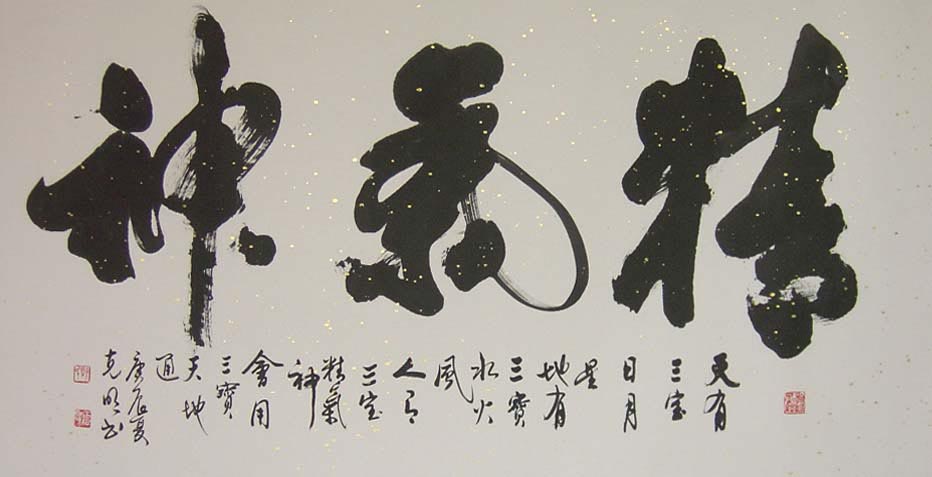 精氣神
天有
三宝
日月
星
地有
三寶
水火
風
人有
三宝
精氣
神
會用
三寶
天地
通
庚辰夏
克明书